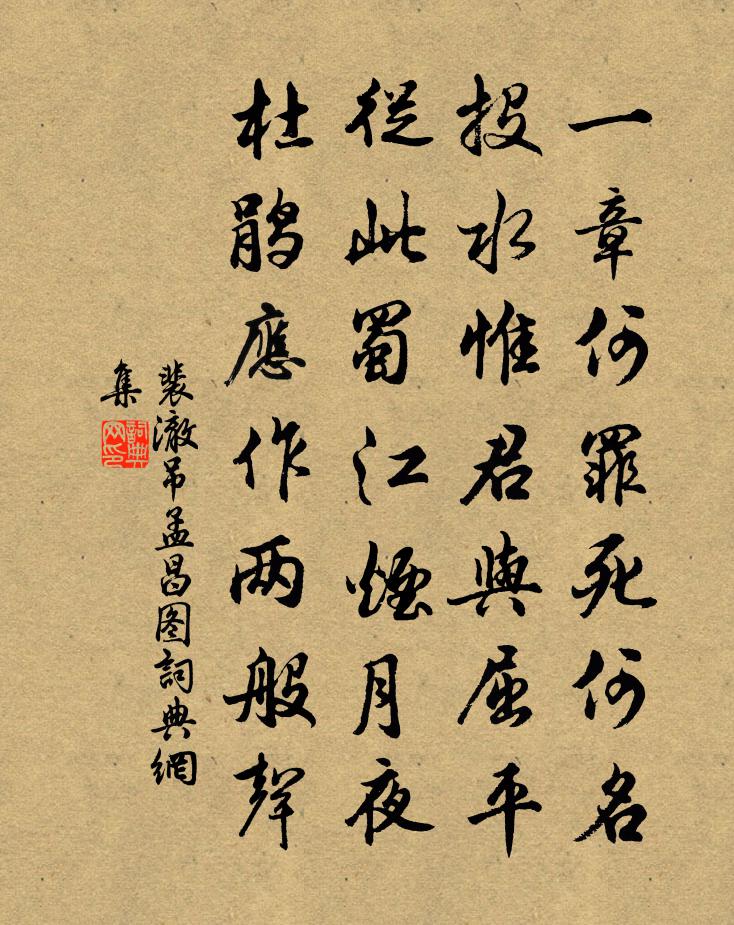 一章何罪死何名
投水惟君與屈平
從此蜀江煙月夜
杜鵑應作两般聲
裴澈吊孟昌图詞典網
集
詞典
网印